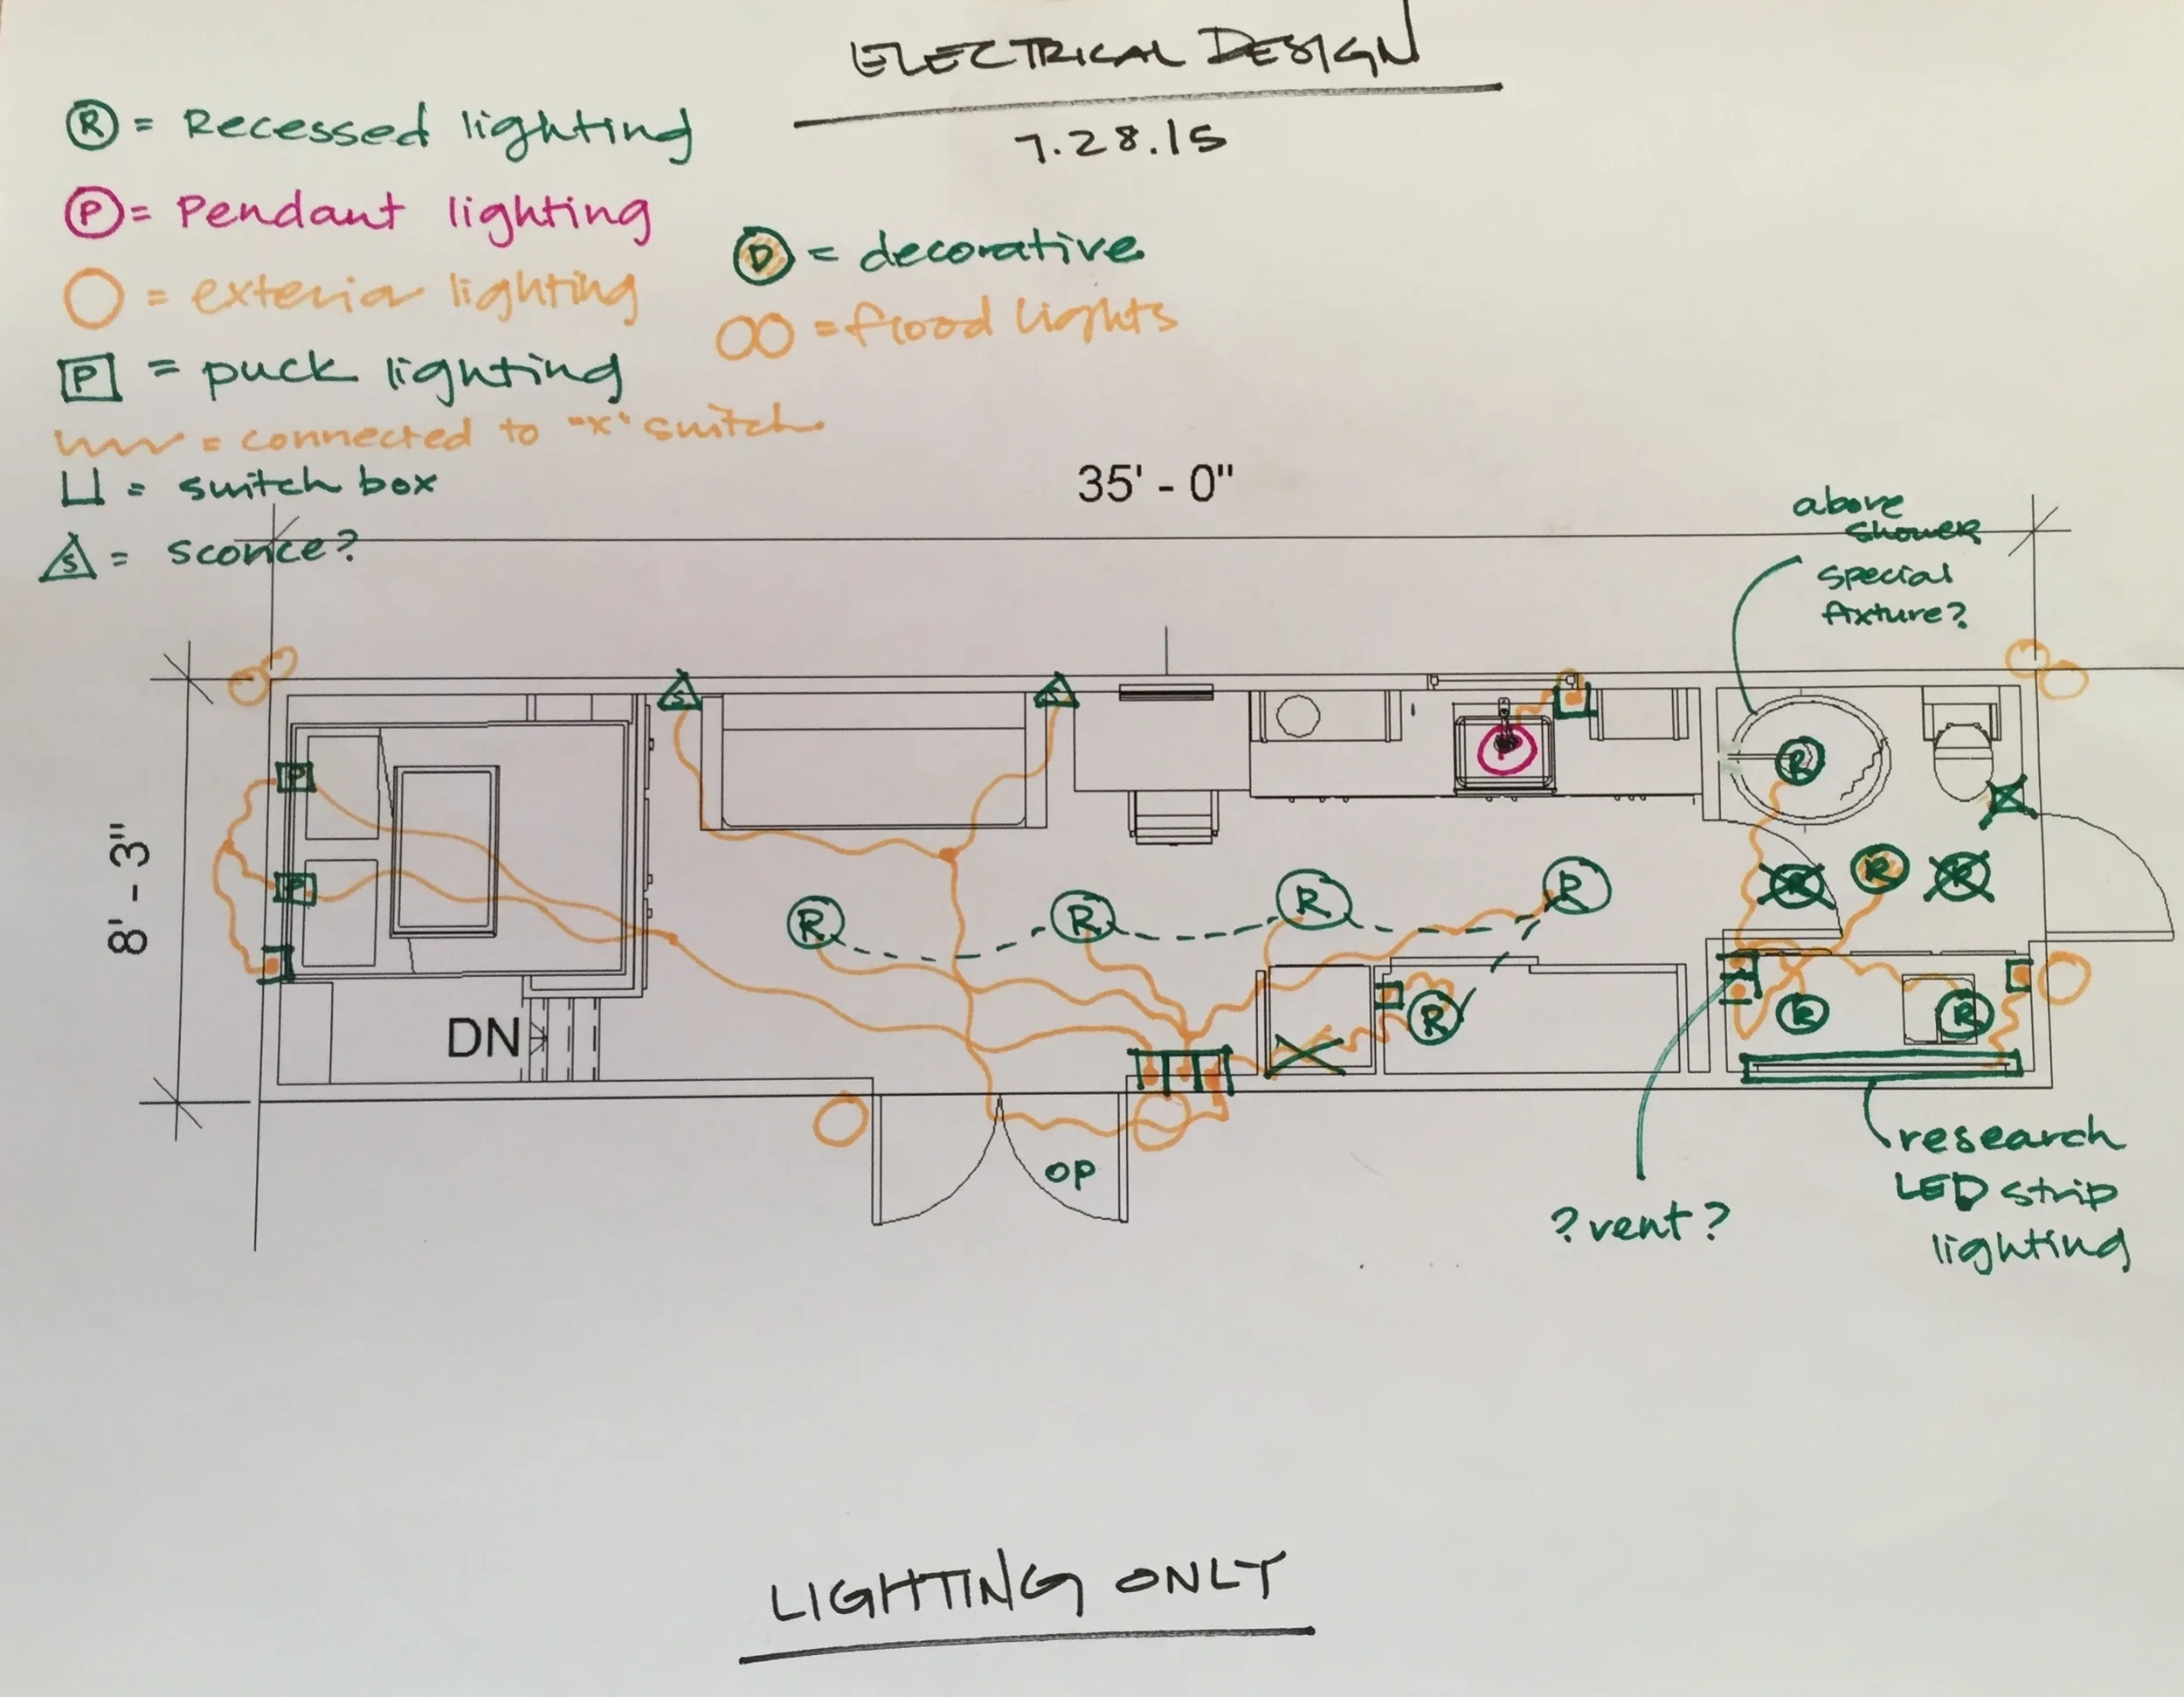 ELECTRICAL DESIGN
7.28.15
R = Recessed lighting
P = Pendant lighting
= exterior lighting
P = puck lighting
= connected to "x" switch.
= switch box
S = sconce?
D = decorative
= flood lights
35' - 0"
above
shower
special
fixture?
8' - 3"
S
S
P
R
P
R
R
R
R
R
P
R
R
R
R
R
R
DN
OP
? vent?
research
LED strip
lighting
LIGHTING ONLY